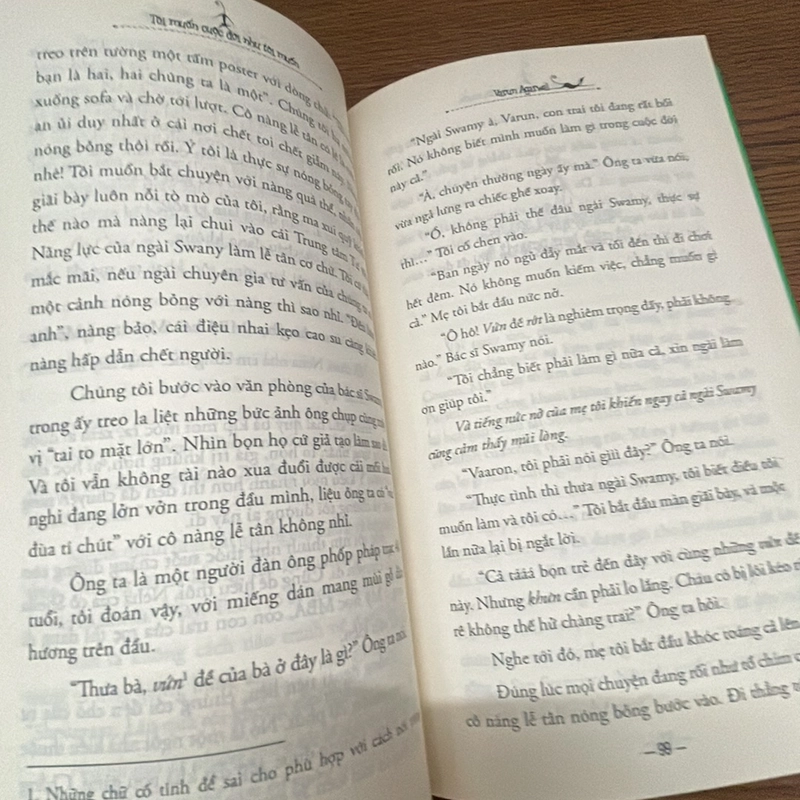 Tôi muốn cuộc đời như tôi muốn
treo trên tường một tấm poster với dòng
bạn là hai, hai chúng ta là một”. Chúng tôi
xuống sofa và chờ tới lượt. Cô nàng lễ tân có lẽ
an ủi duy nhất ở cái nơi chết toi chết giẫm này.
nóng bỏng thôi rồi. Ý tôi là thực sự nóng bỏng
nhé! Tôi muốn bắt chuyện với nàng quá thể,
giãi bày luôn nỗi tò mò của tôi, rằng ma xui quỷ
thế nào mà nàng lại chui vào cái Trung tâm
Năng lực của ngài Swany làm lễ tân cơ chứ. Tôi
mắc mãi, nếu ngài chuyên gia tư vấn của chúng
một cảnh nóng bỏng với nàng thì sao nhỉ. “Đến
anh”, nàng bảo, cái điệu nhai kẹo cao su càng
nàng hấp dẫn chết người.
Chúng tôi bước vào văn phòng của bác sĩ Swamy
trong ấy treo la liệt những bức ảnh ông chụp cùng
vị “tai to mặt lớn”. Nhìn bọn họ cứ giả tạo làm sao
Và tôi vẫn không tài nào xua đuổi được cái mối
nghi đang lởn vởn trong đầu mình, liệu ông ta có
đùa tí chút” với cô nàng lễ tân không nhỉ.
Ông ta là một người đàn ông phốp pháp
tuổi, tôi đoán vậy, với miếng dán mang mùi gỗ
hương trên đầu.
“Thưa bà, vứn¹ đề của bà ở đây là gì?” Ông ta nói
1. Những chữ cố tình để sai cho phù hợp với cách nói
Varun Agarwal
“Ngài Swamy à, Varun, con trai tôi đang rất bối
rối. Nó không biết mình muốn làm gì trong cuộc đời
này cả.”
“À, chuyện thường ngày ấy mà.” Ông ta vừa nói,
vừa ngả lưng ra chiếc ghế xoay.
“Ồ, không phải thế đâu ngài Swamy, thực sự
thì…” Tôi cố chen vào.
“Ban ngày nó ngủ đẫy mắt và tối đến thì đi chơi
hết đêm. Nó không muốn kiếm việc, chẳng muốn gì
cả.” Mẹ tôi bắt đầu nức nở.
“Ồ hô! Vứn đề rứt là nghiêm trọng đấy, phải không
nào.” Bác sĩ Swamy nói.
“Tôi chẳng biết phải làm gì nữa cả, xin ngài làm
ơn giúp tôi.”
Và tiếng nức nở của mẹ tôi khiến ngay cả ngài Swamy
cũng cảm thấy mủi lòng.
“Vaaron, tôi phải nói giìi đây?” Ông ta nói.
“Thực tình thì thưa ngài Swamy, tôi biết điều tôi
muốn làm và tôi có…” Tôi bắt đầu màn giãi bày, và một
lần nữa lại bị ngắt lời.
“Cả tááá bọn trẻ đến đây với cùng những vứn đề
này. Nhưng khứn cần phải lo lắng. Cháu có bị lôi kéo
rê không thế hử chàng trai?” Ông ta hỏi.
Nghe tới đó, mẹ tôi bắt đầu khóc toáng cả lên
Đúng lúc mọi chuyện đang rối như tổ chim
cô nàng lễ tân nóng bỏng bước vào. Đi thẳng
— 99 —